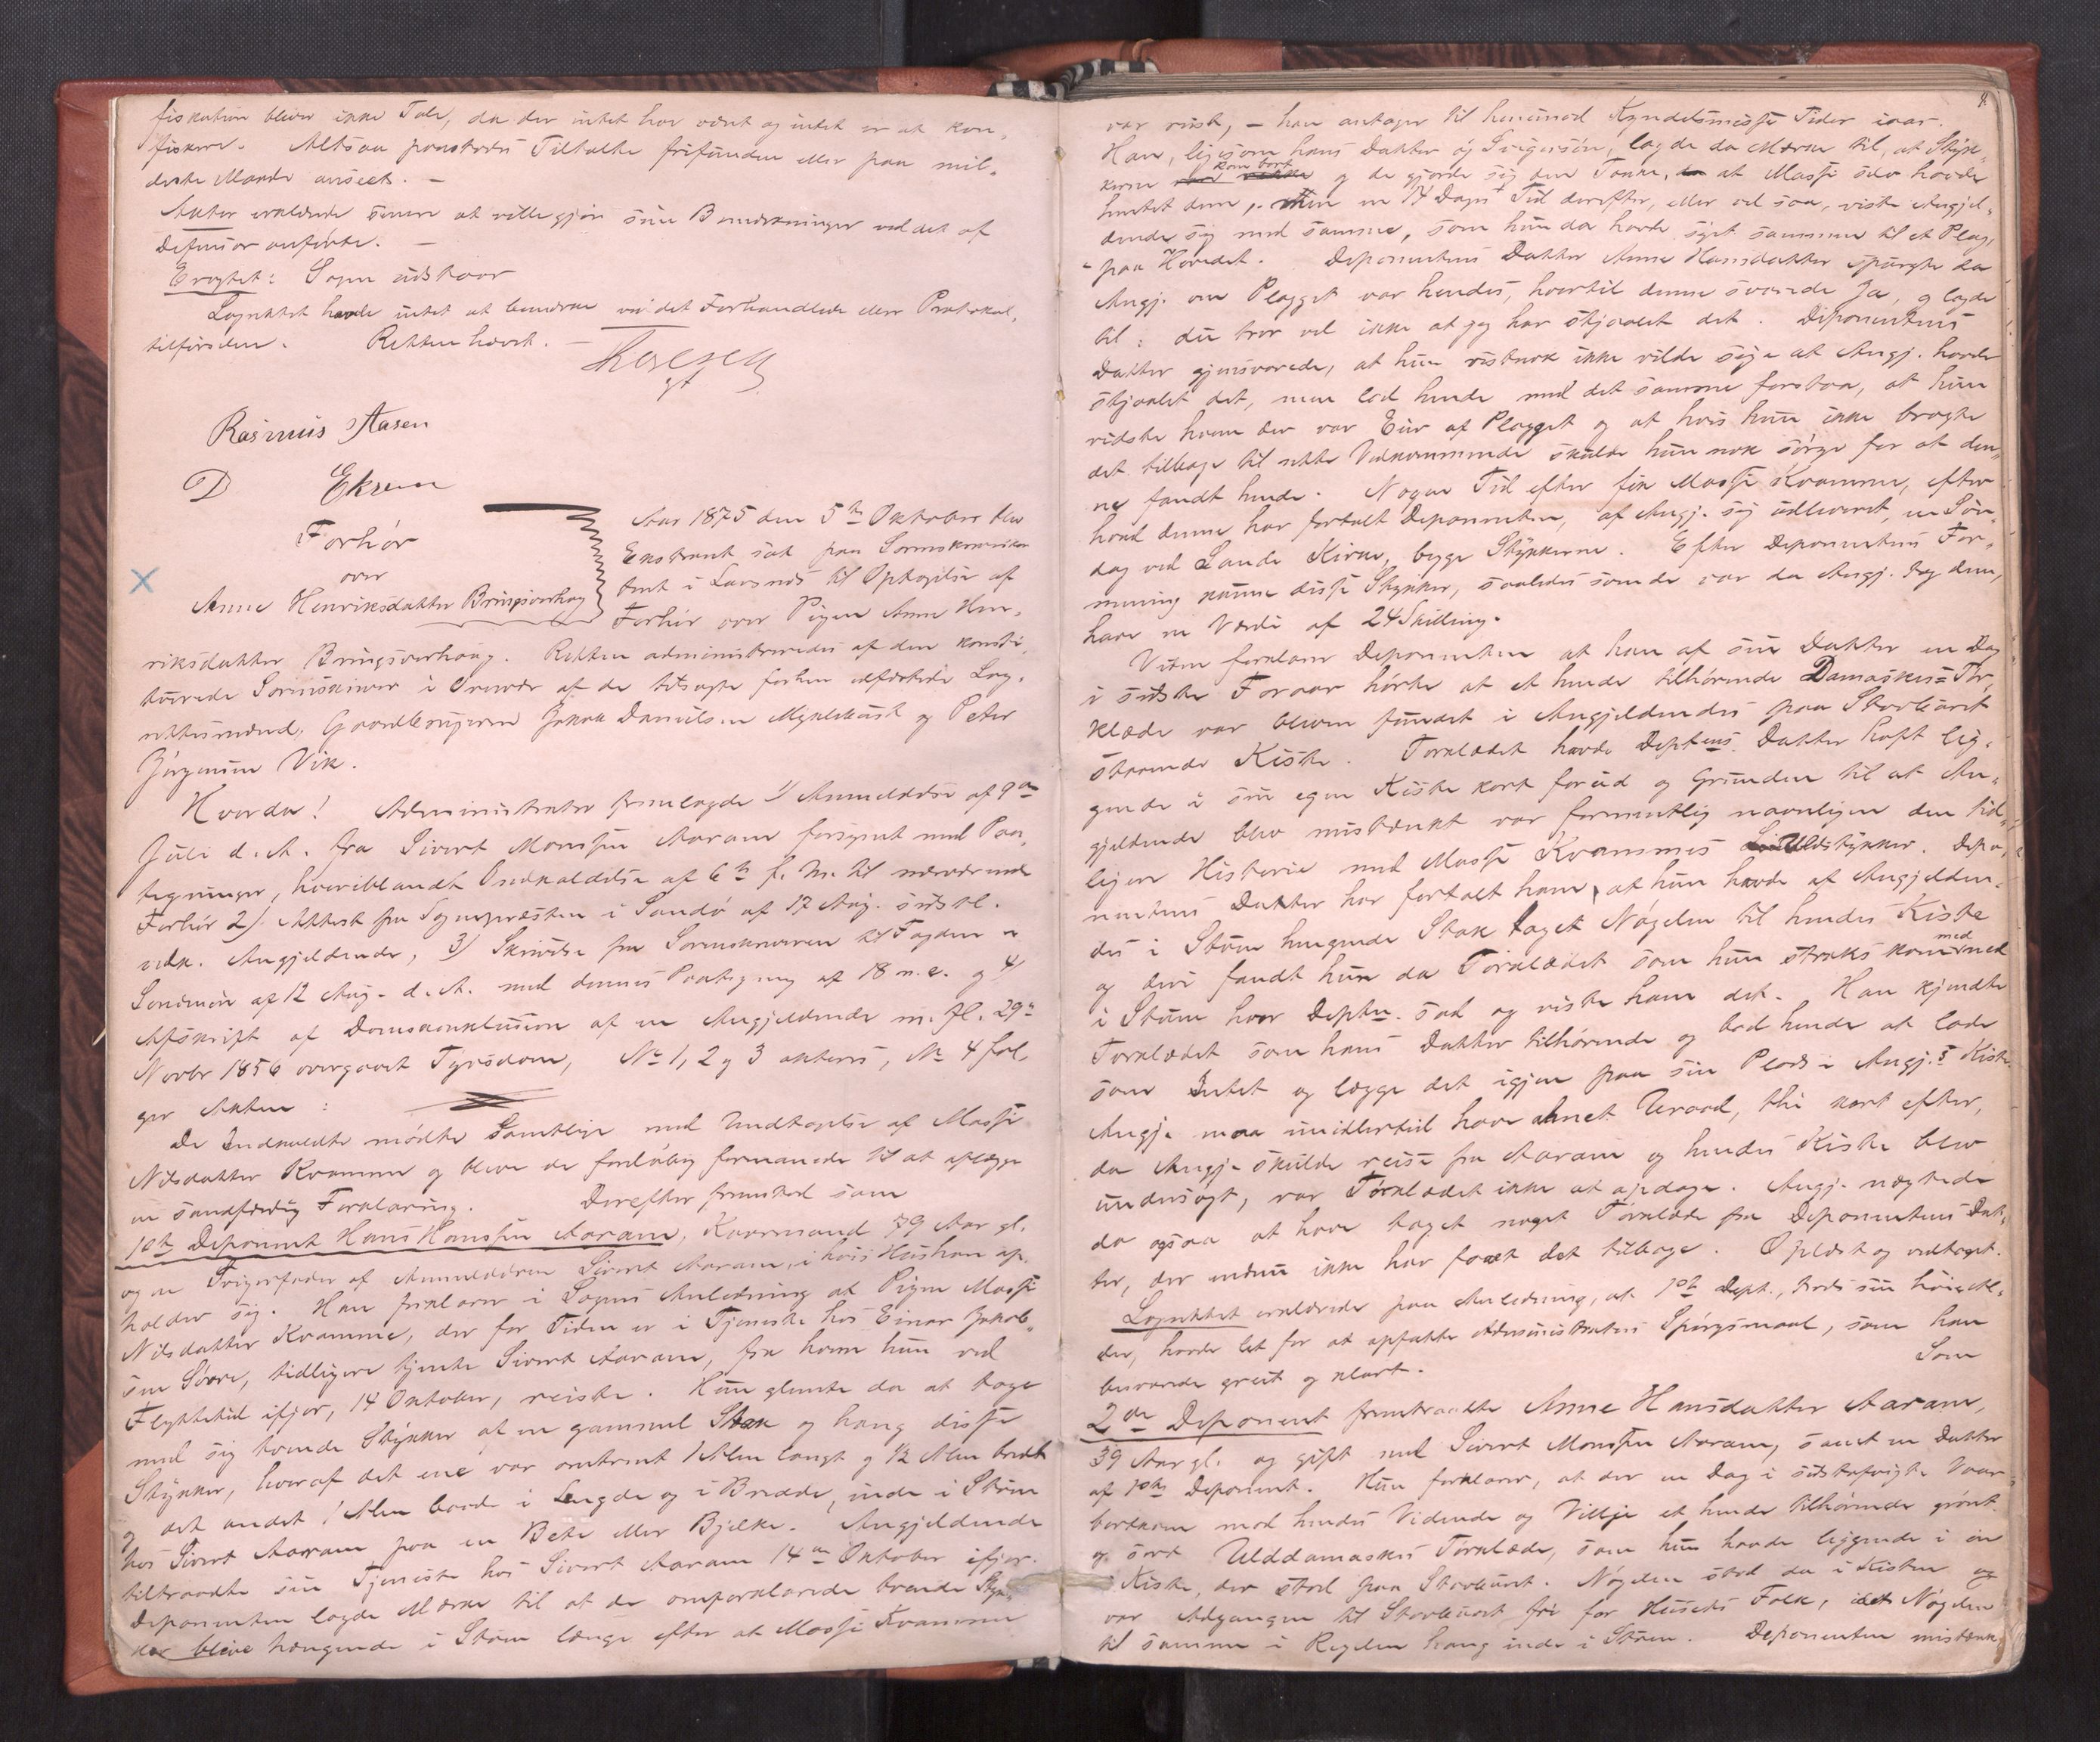 fiskation bliver ikke Tale, da der intet har været og intet er at kon-
fiskere. Altsaa paastodes Tiltalte frifunden eller paa mil-
deste Maade anseet. —
Aktor erklærede senere at ville gjøre sine Bemærkninger ved det af
Defensor anførte. —
Eragtet: Sagen udstaar
Lagrettet havde intet at bemærke ved det Forhandlede eller Protokol-
tilførslen. Retten hævet. —
Rasmus Aasen
D Eksem
Forhør
over
Anne Henriksdatter Bringsverhoug
Aar 1875 den 5te Oktober blev
Ekstraret sat paa Sorenskriverkon-
toret i Larsnæs til Optagelse af
Forhør over Pigen Anne Hen-
riksdatter Bringsverhaug. Retten administreredes af den konsti-
tuerede Sorenskriver i Overvær af de tilsagte forhen edfæstede Lag-
rettesmænd, Gaardbrugerne Jakob Danielsen Myklebust og Peter
Jørgensen Vik.
Hvorda! Administrator fremlagde 1/ Anmeldelse af 9de
Juli d. A. fra Sivert Monssen Aaram forsynet med Paa-
tegninger, hvoriblandt Indkaldelse af 6te f. M. til nærværende
Forhør 2/ Attest fra Sognepræsten i Sandø af 17 Aug. sidstl.
vedk. Angjældende, 3/ Skrivelse fra Sorenskriveren til Fogden i
Søndmør af 12 Aug. d. A. med dennes Paategning af 18 n. e. og 4/
Afskrift af Domskonklusion af en Angjældende m. fl. 29de
Novbr 1856 overgaaet Tyvsdom, No 1, 2 og 3 akteres, No 4 føl-
ger Akten:
De Indkaldte mødte Samtlige med Undtagelse af Massi
Nilsdatter Kvamme og bleve de foreløbig formanede til at aflægge
en sandfærdig Forklaring. Derefter fremstod som
1ste Deponent Hans Hanssen Aaram, Kaarmand 79 Aar gl.
og en Svigerfader af Anmelderen Sivert Aaram, i hvis Hus han op-
holder sig. Han forklarer i Sagens Anledning at Pigen Massi
Nilsdatter Kvamme, der for Tiden er i Tjeneste hos Einar Jakob-
sen Søvre, tidligere tjente Sivert Aaram, fra hvem hun ved
Flyttetid ifjor, 14 Oktober, reiste. Hun glemte da at tage
med sig tvende Stykker af en gammel Stak og hang disse
Stykker, hvoraf det ene var omtrent 1 Alen langt og ½ Alen bredt
og det andet 1 Alen baade i Længde og i Bredde, inde i Stuen
hos Sivert Aaram paa en Bete eller Bjelke. Angjeldende
tiltraadte sin Tjeneste hos Sivert Aaram 14de Oktober ifjor.
Deponenten lagde Mærke til at de omforklarede tvende Styk-
ker bleve hængende i Stuen længe efter at Massi Kvamme
8.
var reist, — han antager til henimod Kyndelsmesse Tider iaar.
Han, ligesom hans Datter og Svigersøn, lagde da Mærke til, at Styk-
kerne kom bort og de gjorde sig den Tanke, at Massi selv havde
hentet dem, men en 14 Dages Tid derefter, eller vel saa, viste Angjel-
dende sig med samme, som hun da havde syet sammen til et Plag
paa Hovedet. Deponentens Datter Anne Hansdatter spurgte da
Angj. om Plagget var hendes, hvortil denne svarede Ja, og lagde
til: du tror vel ikke at jeg har stjaalet det. Deponentens
Datter gjensvarede, at hun vistnok ikke vilde sige at Angj. havde
stjaalet det, men lod hende med det samme forstaa, at hun
vidste hvem der var Eier af Plagget og at hvis hun ikke bragte
det tilbage til rette Vedkommende skulde hun nok sørge for at den-
ne fandt hende. Nogen Tid efter fik Massi Kvamme, efter
hvad denne har fortalt Deponenten, af Angj. sig udleveret, en Søn-
dag ved Sande Kirke, begge Stykkerne. Efter Deponentens For-
mening kunne disse Stykker, saaledes som de var da Angj. tog dem,
have en Værdi af 24 Skilling.
Videre forklarer Deponenten at han af sin Datter en Dag
i sidste Foraar hørte at et hende tilhørende Damaskes=For-
klæde var bleven fundet i Angjeldendes paa Stavburet
staaende Kiste. Forklædet havde Deptens Datter havt lig-
gende i sin egen Kiste kort forud og Grunden til at An-
gjeldende blev mistænkt var formentlig navnligen den tid-
ligere Historie med Massi Kvammes Stykker. Depo-
nentens Datter har fortalt ham, at hun havde af Angjelden-
des i Stuen hængende Stak taget Nøgelen til hendes Kiste
og deri fandt hun da Forklædet som hun straks kom med ned
i Stuen hvor Depten sad og viste ham det. Han kjendte
Forklædet som hans Datter tilhørende og bad hende at lade
som Intet og lægge det igjen paa sin Plads i Angj.s Kiste.
Angj. maa imidlertid have ahnet Uraad, thi kort efter,
da Angj. skulde reise fra Aaram og hendes Kiste blev
undersøgt, var Forklædet ikke at opdage. Angj. nægtede
da ogsaa at have taget noget Forklæde fra Deponentens Dat-
ter, der endnu ikke har faaet det tilbage. Oplæst og vedtaget.
Lagrettet erklærede paa Anledning, at 1ste Dept., trods sin høie Al-
der, havde let for at opfatte Administrators Spørgsmaal, som han
besvarede greit og klart. Som
2den Deponent fremtraadte Anne Hansdatter Aaram,
39 Aar gl. og gift med Sivert Monssen Aaram, samt en Datter
af 1ste Deponent. Hun forklarer, at der en Dag i sidstafvigte Vaar
bortkom mod hendes Vidende og Villje et hende tilhørende grønt
og sort Ulddamaskes Forklæde, som hun havde liggende i en
Kiste, der stod paa Stavburet. Nøgelen stod da i Kisten og
var Adgangen til Stavburet fri for Husets Folk, idet Nøgelen
til samme i Regelen hang inde i Stuen. Deponenten mistænk-